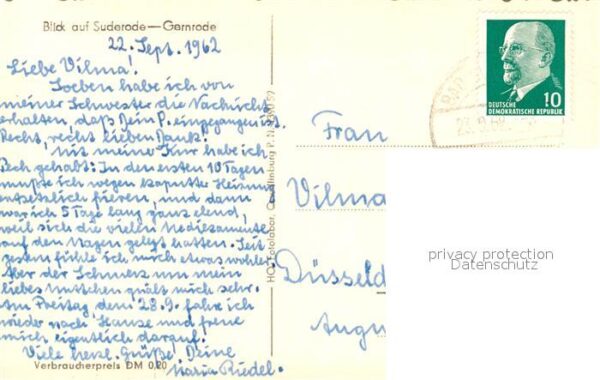 Blick auf Suderode—Gernrode
22. Sept. 1962
Liebe Vilma!
Soeben habe ich von
meiner Schwester die Nachricht
erhalten, daß Dein P. eingegangen ist.
Recht, recht lieben Dank!
Mit meiner Kur habe ich
Pech gehabt: In den ersten 10 Tagen
mußte ich wegen kaputter Heizung
entsetzlich frieren, und dann
war ich 5 Tage lang ganz elend,
weil sich die vielen Medikamente
auf den Magen gelegt hatten. Seit
gestern fühle ich mich etwas wohler.
Aber der Schmerz um mein
liebes Muttchen quält mich sehr.
Am Freitag, dem 28.9. fahre ich
wieder nach Hause und freue
mich eigentlich darauf.
Viele herzl. Grüße! Deine
Maria Riedel.
Verbraucherpreis DM 0,20
Quedlinburg
10
DEUTSCHE
DEMOKRATISCHE REPUBLIK
Frau
Vilma
Düsseld
Augu
privacy protection
Datenschutz